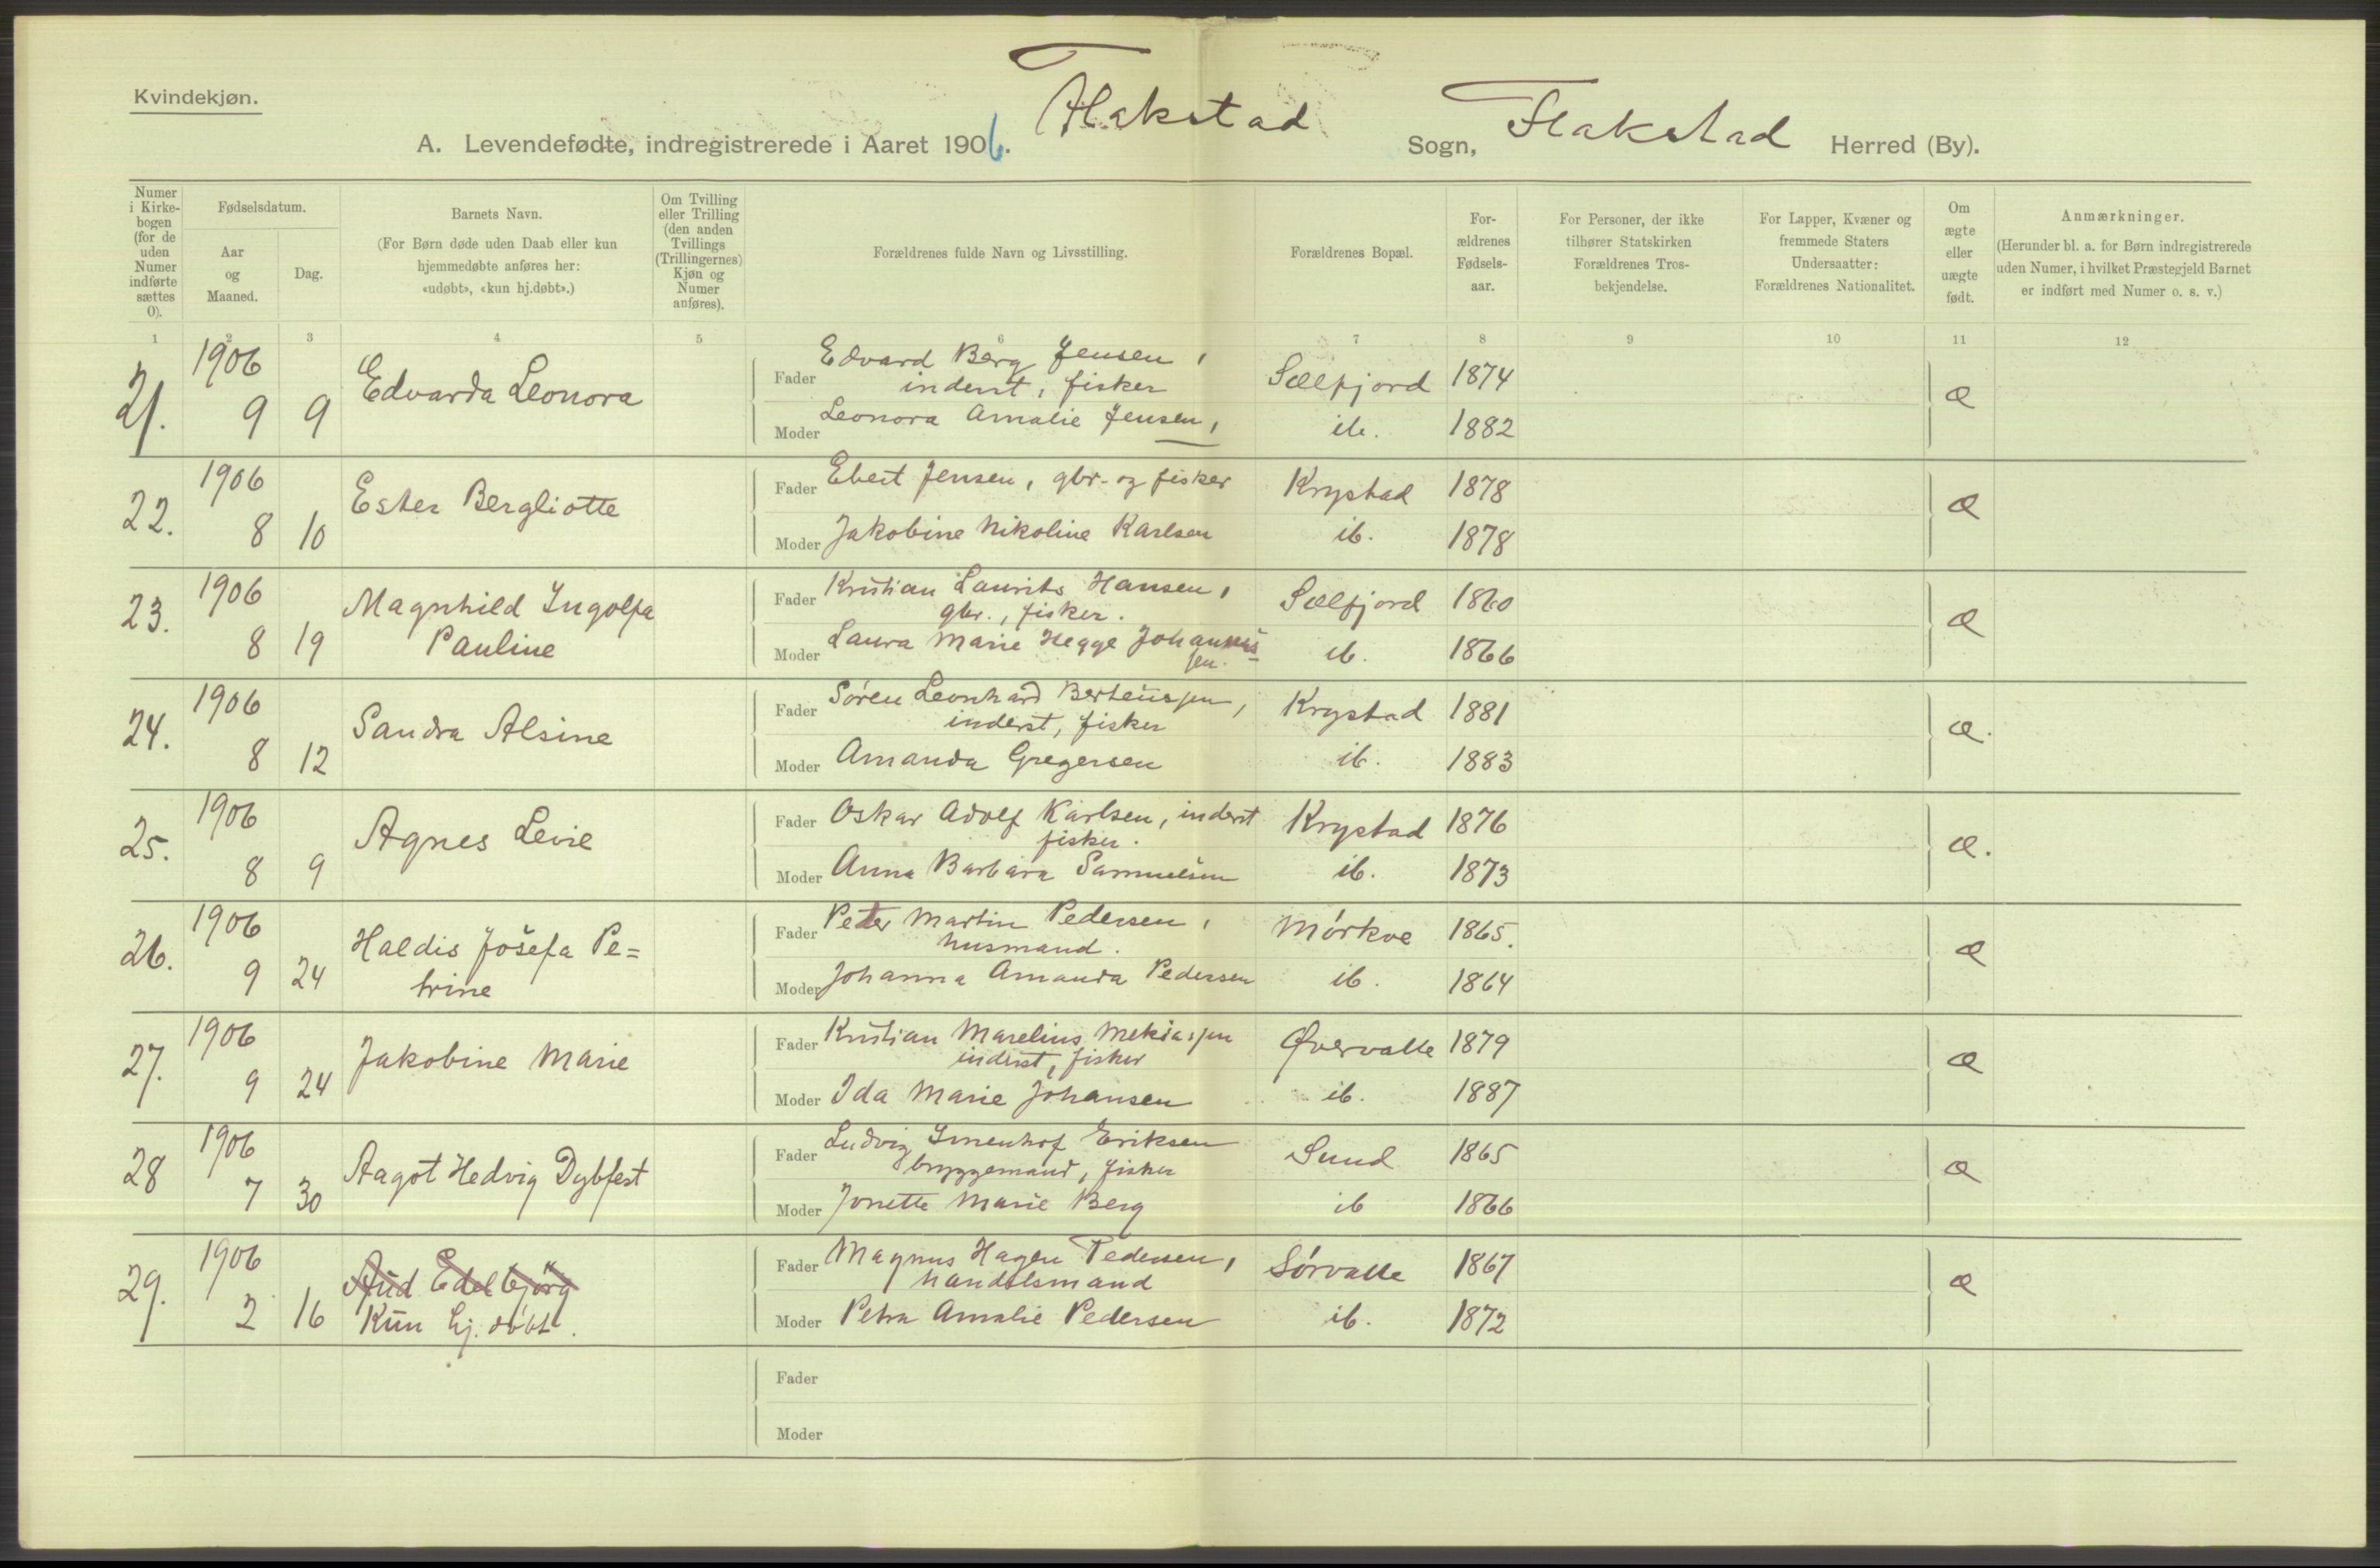 Kvindekjøn.
A. Levendefødte, indregistrerede i Aaret 1906. Flakstad Sogn, Flakstad Herred (By).
Numer i Kirke-bogen (for de uden Numer indførte sættes 0).
Fødselsdatum.
Aar og Maaned.
Dag.
Barnets Navn.
(For Børn døde uden Daab eller kun
hjemmedøbte anføres her:
«udøbt», «kun hj.døbt».)
Om Tvilling eller Trilling (den anden Tvillings (Trillingernes) Kjøn og Numer anføres).
Forældrenes fulde Navn og Livsstilling.
Forældrenes Bopæl.
For-ældrenes Fødsels-aar.
For Personer, der ikke tilhører Statskirken Forældrenes Tros-bekjendelse.
For Lapper, Kvæner og fremmede Staters Undersaatter: Forældrenes Nationalitet.
Om ægte eller uægte født.
Anmærkninger.
(Herunder bl. a. for Børn indregistrerede
uden Numer, i hvilket Præstegjeld Barnet
er indført med Numer o. s. v.)
1 2 3 4 5 6 7 8 9 10 11 12
21. 1906 9 9 Edvarda Leonora
Fader Edvard Berg Jensen,
inderst, fisker Sælfjord 1874 æ
Moder Leonora Amalie Jensen, ib. 1882
22. 1906 8 10 Ester Bergliotte
Fader Ebert Jensen, gbr- og fisker Krystad 1878 æ
Moder Jakobine Nikoline Karlsen ib. 1878
23. 1906 8 19 Magnhild Ingolfa
Pauline
Fader Kristian Laurits Hansen,
gbr., fisker. Sælfjord 1860 æ
Moder Laura Marie Hegge Johannes-
sen. ib. 1866
24. 1906 8 12 Sandra Alsine
Fader Søren Leonhard Berteussen,
inderst, fisker Krystad 1881 æ.
Moder Amanda Gregersen ib. 1883
25. 1906 8 9 Agnes Levie
Fader Oskar Adolf Karlsen, inderst
fisker. Krystad 1876 æ.
Moder Anna Barbara Samuelsen ib. 1873
26. 1906 9 24 Haldis Josefa Pe=
trine
Fader Peter Martin Pedersen,
husmand. Mørkve 1865. æ
Moder Johanna Amanda Pedersen ib. 1864
27. 1906 9 24 Jakobine Marie
Fader Kristian Marelius Mekiassen
inderst, fisker Øvervalle 1879 æ
Moder Ida Marie Johansen ib. 1887
28 1906 7 30 Aagot Hedvig Dybfest
Fader Ludvig Imenhof Eriksen
bryggemand, fisker Sund 1865 æ
Moder Jonette Marie Berg ib 1866
29. 1906 2 16 Aud Edel bjørg
Kun hj. døbt.
Fader Magnus Hagen Pedersen,
handelsmand Sørvalle 1867 æ
Moder Petra Amalie Pedersen ib. 1872
Fader
Moder